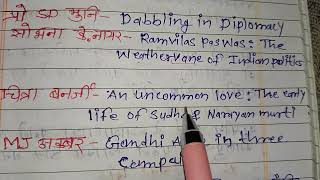 प्रो SD मुनि - Dabbling in Diplomacy
शोभना है. नायर - Ramvilas Paswas: The
Weathervane of Indian politics
चित्रा बनर्जी - An uncommon love: The early
life of Sudha & Narayan murti
MJ अकबर - Gandhi A in three
Compa